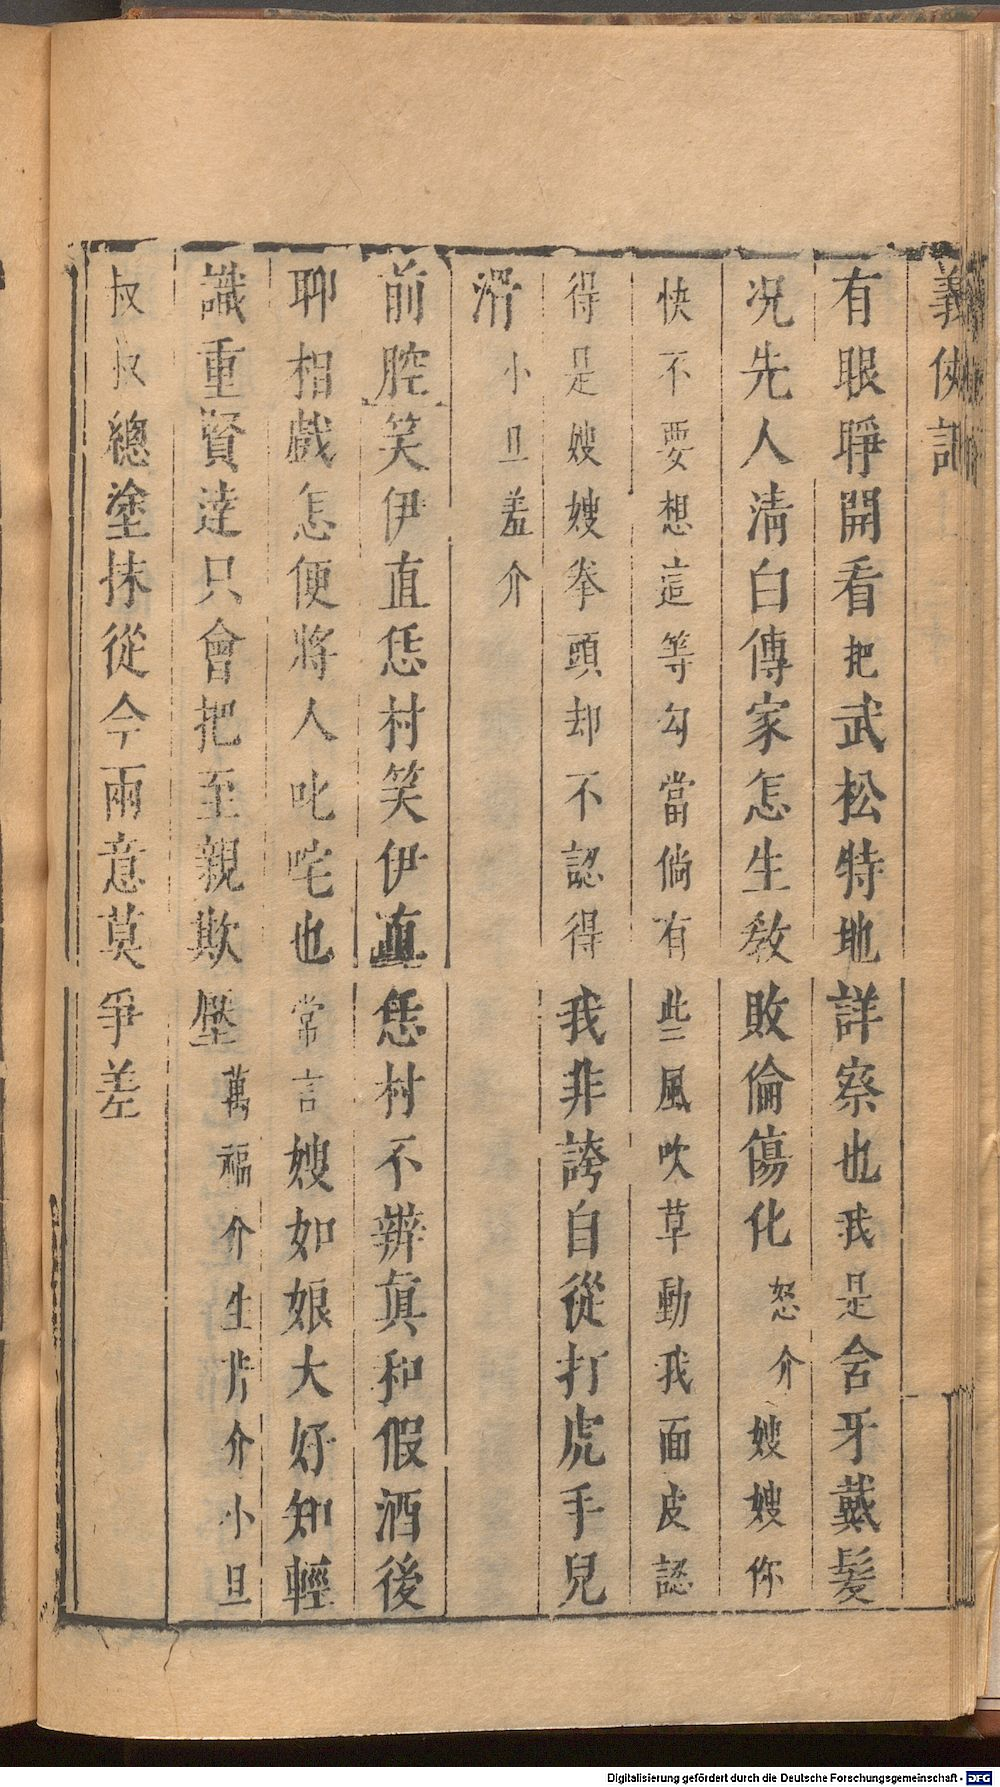 義俠記
有眼睜開看把武松特地詳察也我是含牙戴髮
况先人淸白傳家怎生敎敗倫傷化怒介嫂嫂你
快不要想這等勾當倘有些風吹草動我面皮認
得是嫂嫂拳頭却不認得我非誇自從打虎手兒
滑小旦羞介
前腔笑伊直恁村笑伊直恁村不辨眞和假酒後
聊相戲怎便將人叱咤也常言嫂如娘大好知輕
識重賢達只會把至親欺壓萬福介生背介小旦
叔叔總塗抹從今兩意莫爭差
Digitalisierung gefördert durch die Deutsche Forschungsgemeinschaft - DFG